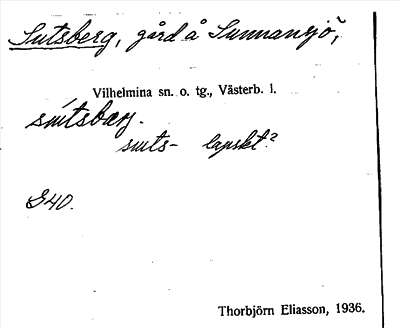 Sutsberg, gård å Sunnansjö,
Vilhelmina sn. o. tg., Västerb. l.
suts- lapskt?
S40.
Thorbjörn Eliasson, 1936.